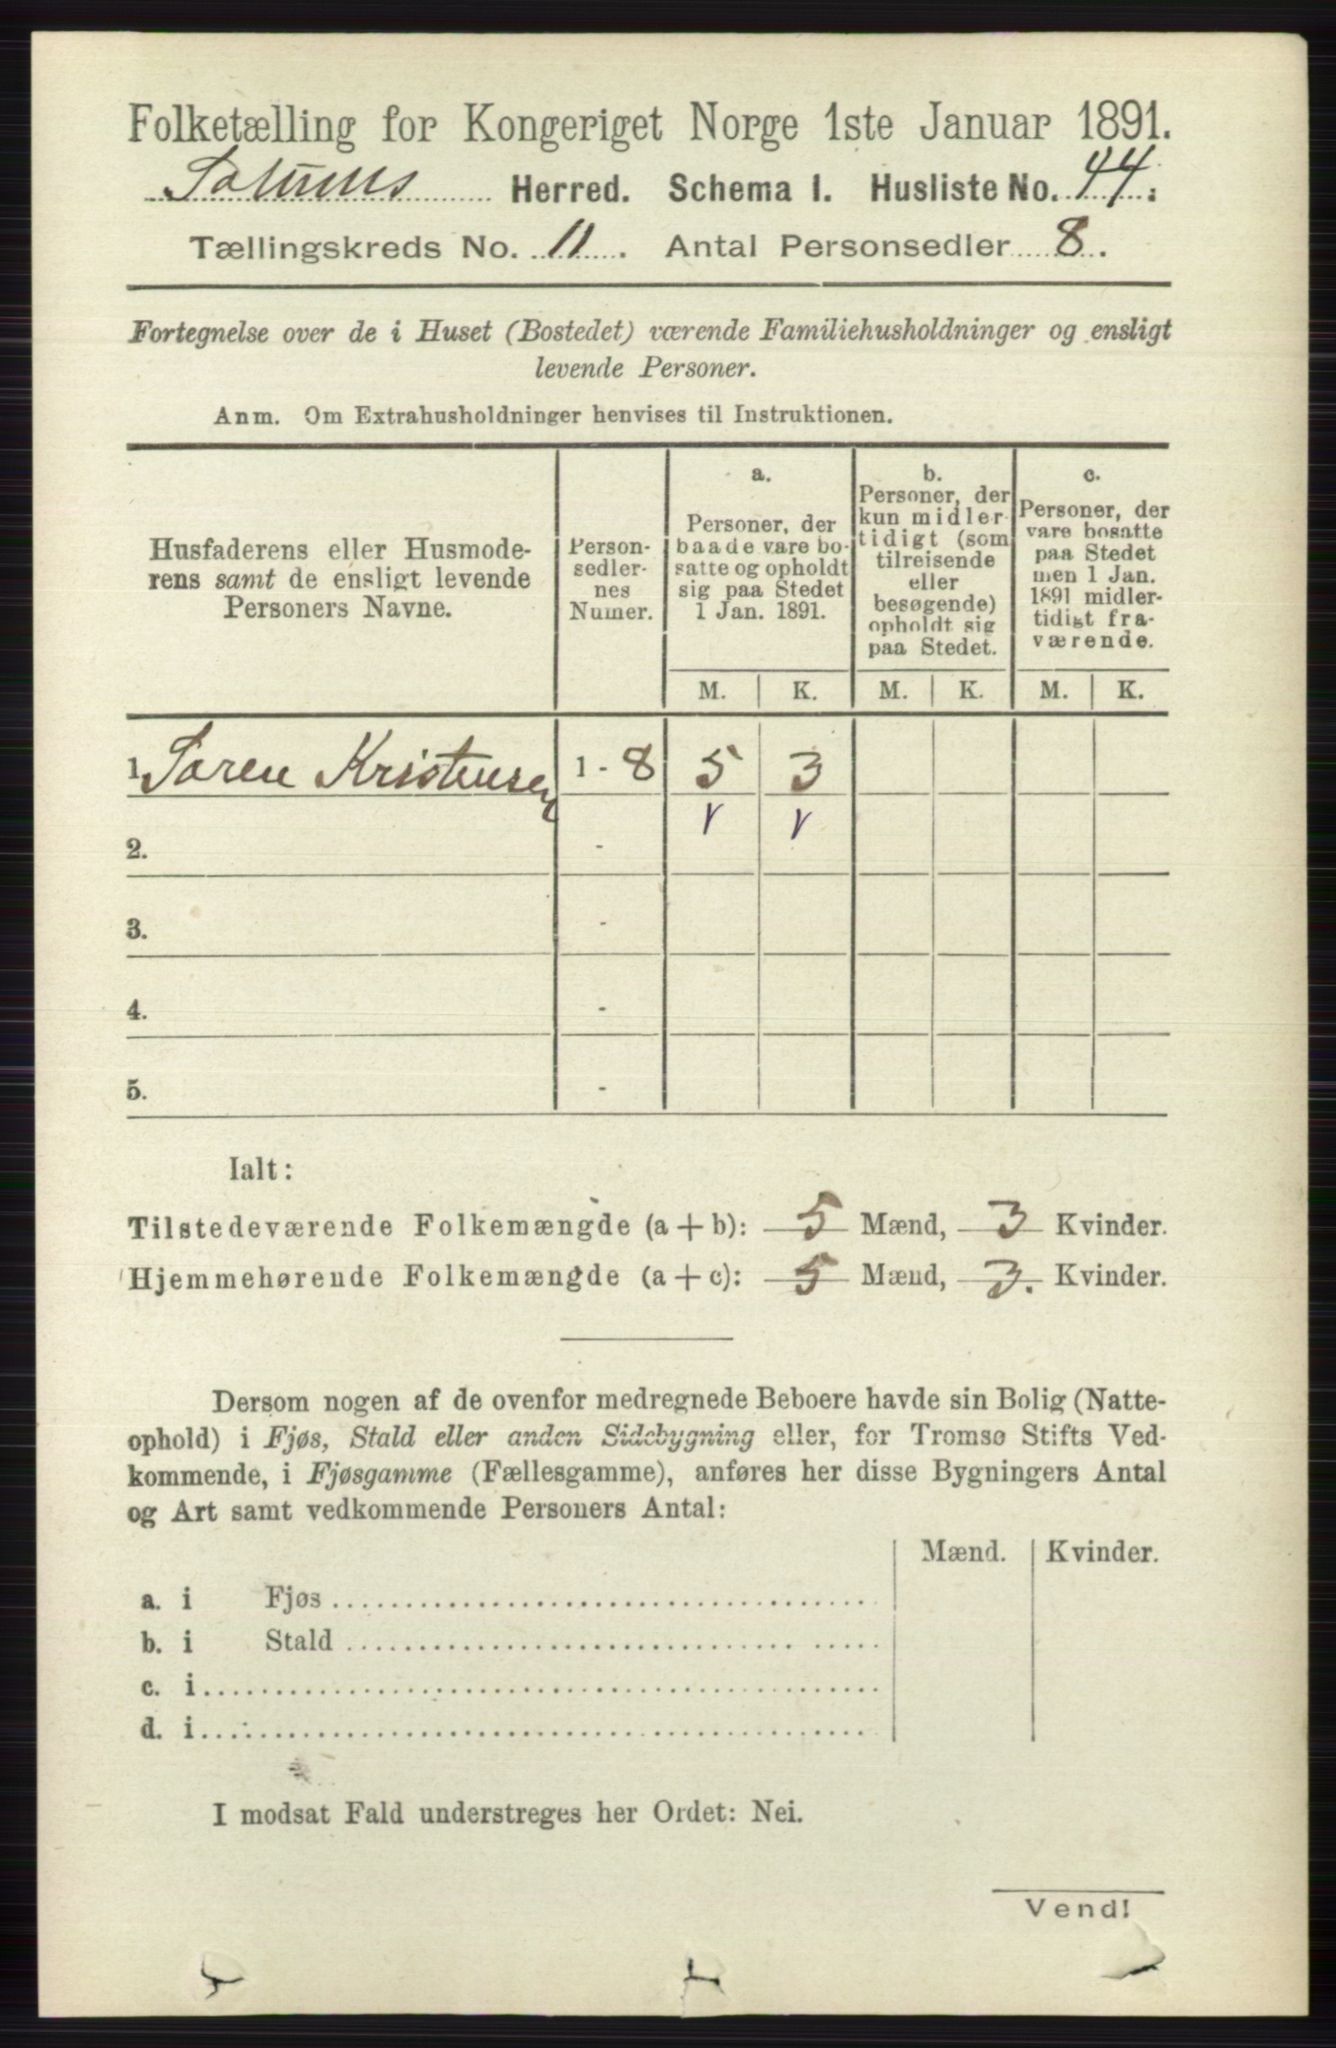 Folketælling for Kongeriget Norge 1ste Januar 1891.
Solums Herred. Schema I. Husliste No. 44.
Tællingskreds No. 11. Antal Personsedler 8.
Fortegnelse over de i Huset (Bostedet) værende Familiehusholdninger og ensligt
levende Personer.
Anm. Om Extrahusholdninger henvises til Instruktionen.
Husfaderens eller Husmode-
rens samt de ensligt levende
Personers Navne.
Person-
sedler-
nes
Numer.
a.
Personer, der
baade vare bo-
satte og opholdt
sig paa Stedet
1 Jan. 1891.
b.
Personer, der
kun midler-
tidigt (som
tilreisende
eller
besøgende)
opholdt sig
paa Stedet.
c.
Personer, der
vare bosatte
paa Stedet
men 1 Jan.
1891 midler-
tidigt fra-
værende.
M. K. M. K. M. K.
1. Søren Kristensen 1 - 8 5 3
2. -
3. -
4. -
5. -
Ialt:
Tilstedeværende Folkemængde (a + b): 5 Mænd, 3 Kvinder.
Hjemmehørende Folkemængde (a + c): 5 Mænd, 3. Kvinder.
Dersom nogen af de ovenfor medregnede Beboere havde sin Bolig (Natte-
ophold) i Fjøs, Stald eller anden Sidebygning eller, for Tromsø Stifts Ved-
kommende, i Fjøsgamme (Fællesgamme), anføres her disse Bygningers Antal
og Art samt vedkommende Personers Antal:
Mænd. Kvinder.
a. i Fjøs
b. i Stald
c. i
d. i
I modsat Fald understreges her Ordet: Nei.
Vend!